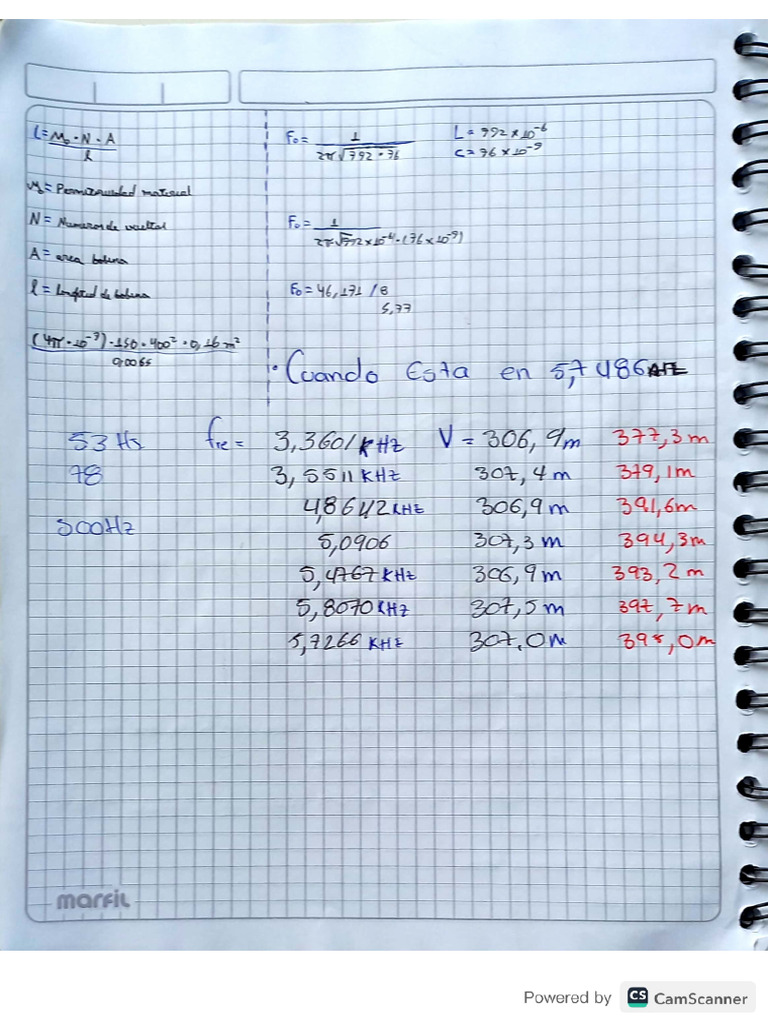 L = M₀ · N · A
l
M₀ = material
N = Numeros de vueltas
A = area bobina
l = longitud de bobina
(4π · 10⁻⁷) · 150 · 400² · 0,16 m²
0,0065
F₀ = 1
2π √792 · 76
L = 992 × 10⁻⁶
C = 76 × 10⁻⁹
F₀ = 1
F₀ = 46,171 / 8
5,77
· Cuando Esta en 5,7486
53 Hz
78
500Hz
fre = 3,3601 KHZ V = 306,9m 377,3m
3,5511 KHZ 307,4m 379,1m
4,8642 KHZ 306,9m 391,6m
5,0906 307,3m 394,3m
5,4767 KHZ 306,9m 393,2m
5,8070 KHZ 307,5m 397,7m
5,7266 KHZ 307,0m ,0m
marfil
Powered by CS CamScanner